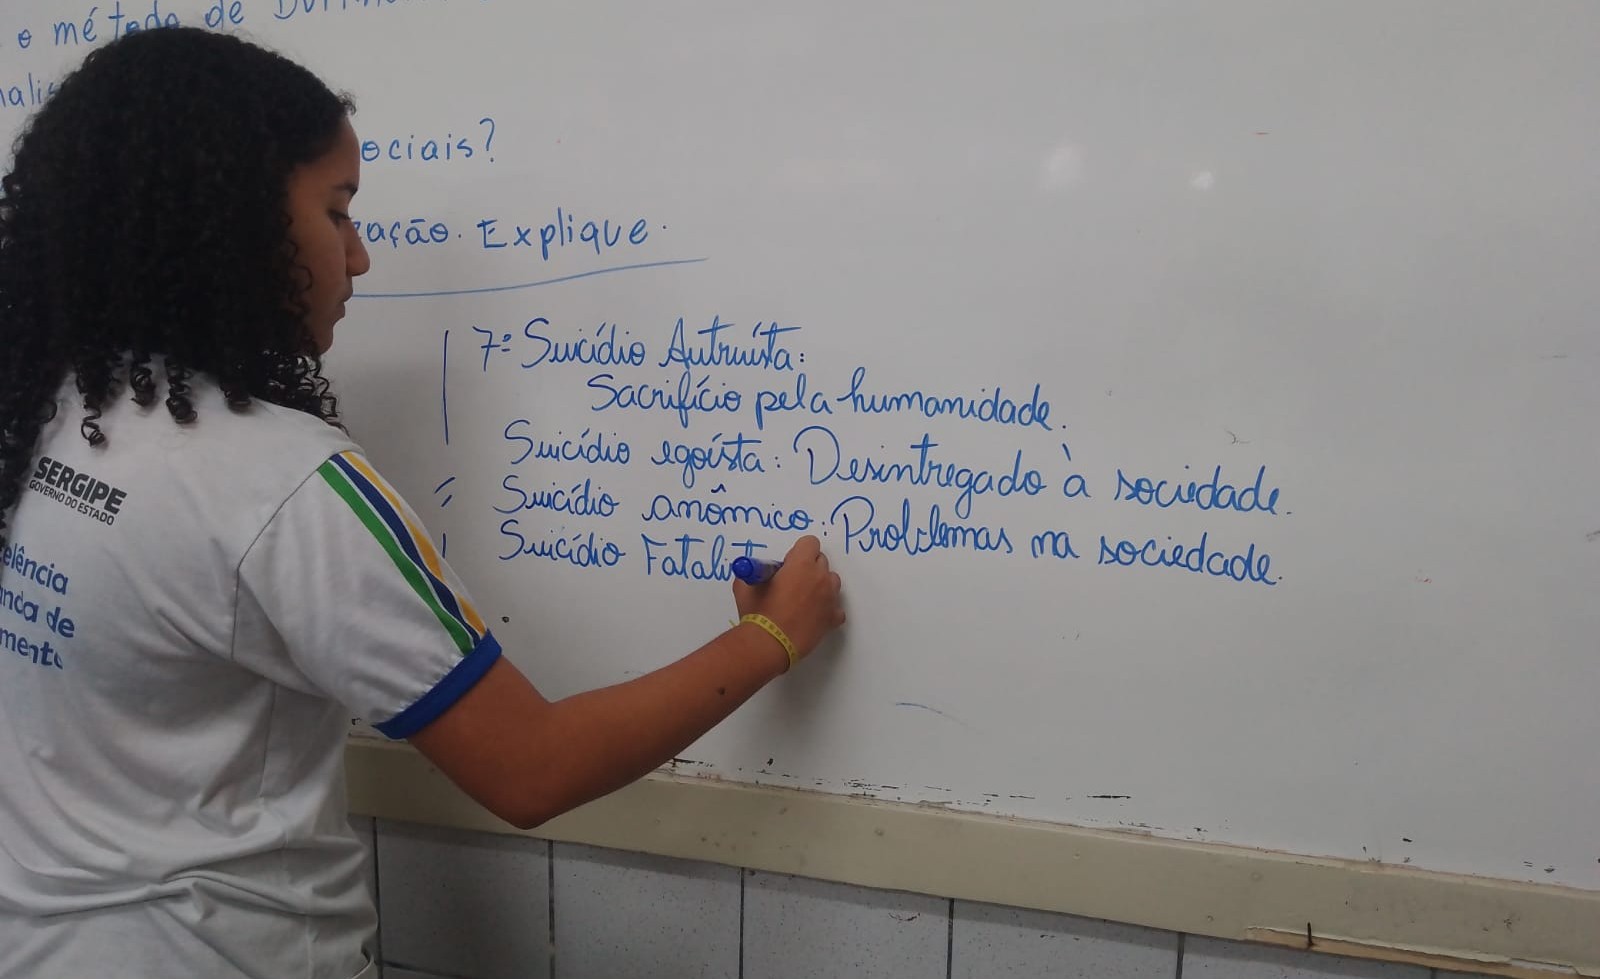 o método de
ociais?
zação. Explique.
7º Suicídio Autruísta:
Sacrifício pela humanidade.
Suicídio egoísta: Desintregado à sociedade.
Suicídio anômico: Problemas na sociedade.
Suicídio Fatalist
SERGIPE
GOVERNO DO ESTADO
elência
nda de
mento